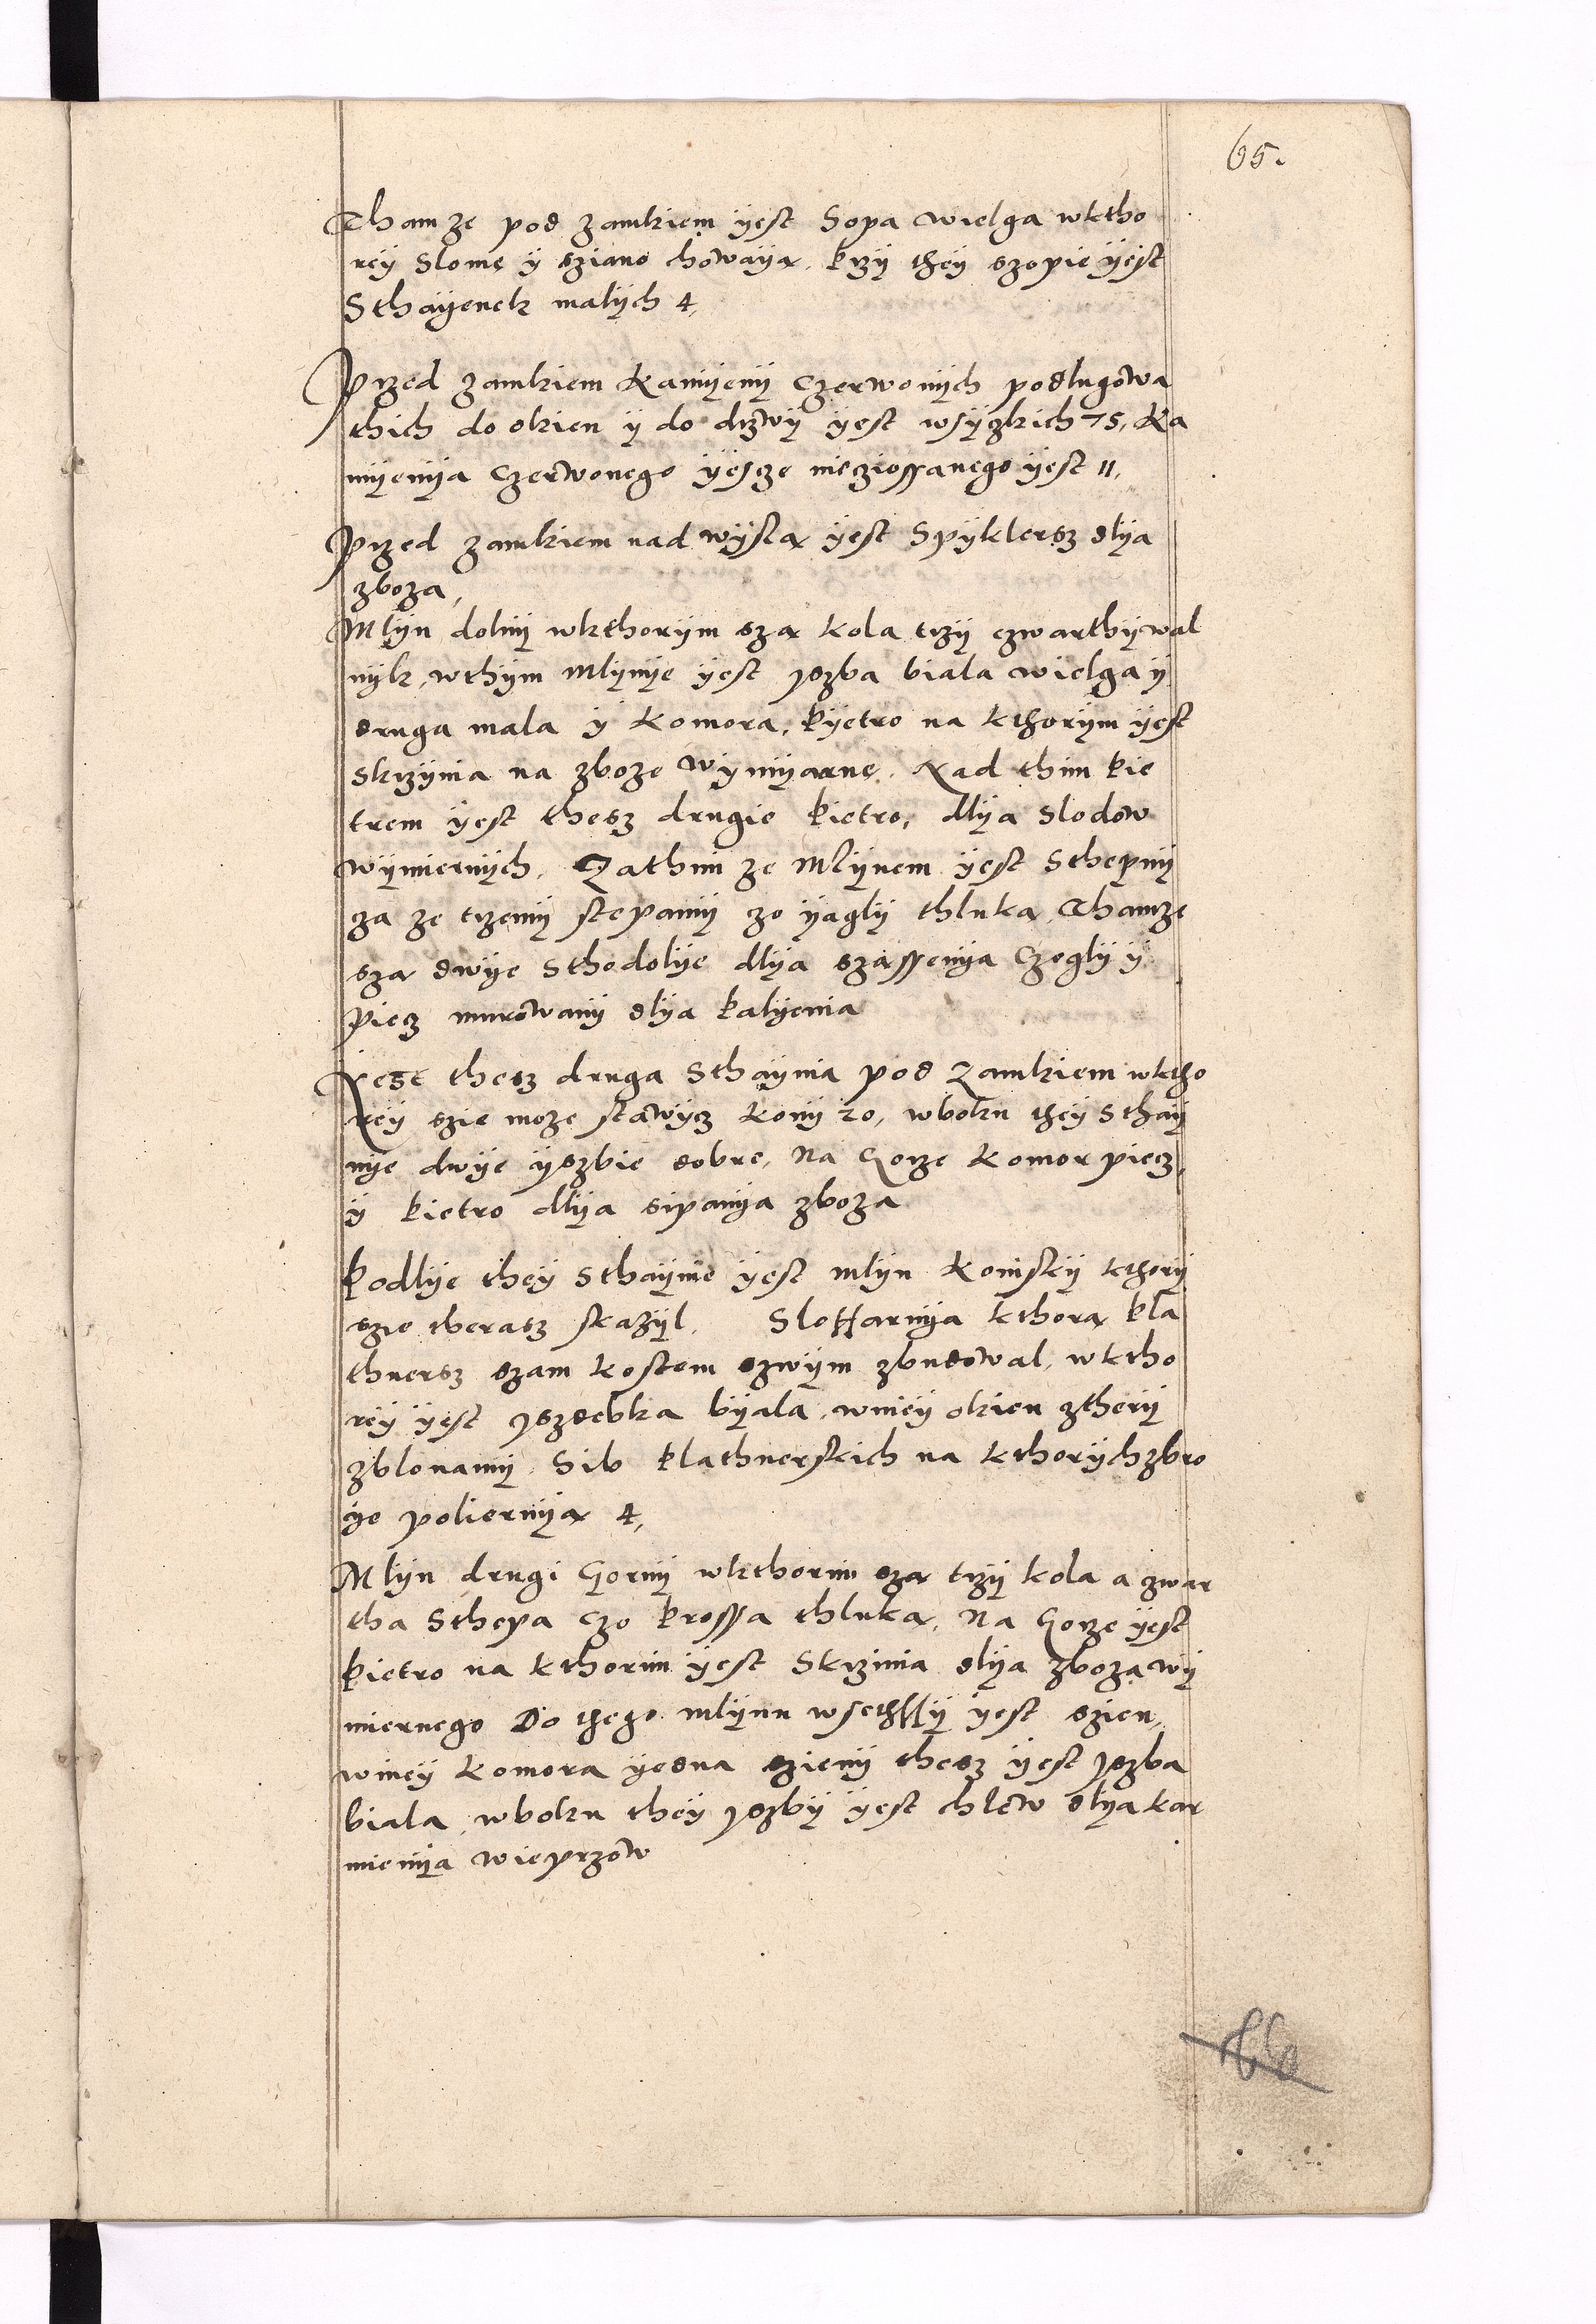 65.
Thamze pod zamkiem yest Sopa wielga wktho
rey Slome y sziano chowaya, przy they szopie yest
Sthayenek malych 4,
Przed zamkiem Kamyeny Czerwonych podlugowa
thich do okien y do drzwy yest wsyzkich 75, Ka
myenya Czerwonego yescze nieziossanego yest 11,
Przed zamkiem nad wysla yest Spyklersz dlya
zboza,
Mlyn dolny wkthorym sza kola trzy czwarthy wal
nyk, wthym Mlynye yest yszba biala wielga y
druga mala y komora, pyetro na kthorym yest
skrzynia na zboze wymyarne. Nad thim pie
trem yest thesz drugie pietro, dlya Slodow
wymiernych. Zathim ze Mlynem yest Sthepny
za ze trzemy stepamy zo yagly thluka, Thamze
sza dwye Sthodolye dlya szassenya Czegly y
piecz murowany dlya palyenia
Yest thesz druga Sthaynia pod Zamkiem wktho
rey szie moze stawycz kony 20, wboku they Sthay
nye dwye yszbie dobre, Na Gorze komor piecz,
y pietro dlya sipanya zboza
Podlye they Sthaynie yest mlyn konisky kthory
szie therasz skazyl. Sloffarnya kthora pla
thnersz szam kostem szwym zbudowal, wktho
rey yest yszdebka byala, wniey okien ztherij
zblonamy, Sib plathnerskich na kthorych zbro
ye poliernya 4,
Mlyn drugi Gorny wkthorim sza trzy kola a zwar
tha Sthepa Czo prossa thluka, Na Gorze yest
pietro na kthorim yest Skrzinia dlya zboza wy
miernego Do thego mlynu yest szien,
wniey komora yedna szieny thesz yest yszba
biala, wboku they yszby yest chlew dlya kar
mienya wieprzow